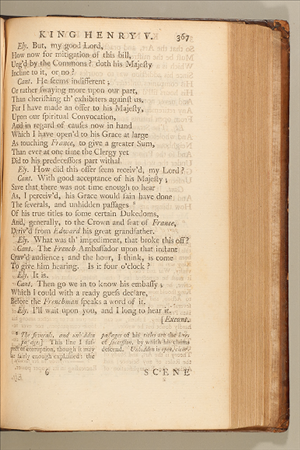 KING HENRY V. 367
Ely. But, my good Lord,
How now for mitigation of this bill,
Urg'd by the Commons? doth his Majesty
Incline to it, or no?
Cant. He seems indifferent;
Or rather swaying more upon our part,
Than cherishing th' exhibiters against us,
For I have made an offer to his Majesty,
Upon our spiritual Convocation,
And in regard of causes now in hand
Which I have open'd to his Grace at large
As touching France, to give a greater Sum,
Than ever at one time the Clergy yet
Did to his predecessors part withal.
Ely. How did this offer seem receiv'd, my Lord?
Cant. With good acceptance of his Majesty;
Save that there was not time enough to hear
As, I perceiv'd, his Grace would fain have done
The severals, and unhidden passages *
Of his true titles to some certain Dukedoms,
And, generally, to the Crown and seat of France,
Deriv'd from Edward his great grandfather.
Ely. What was th' impediment, that broke this off?
Cant. The French Ambassador upon that instant
Crav'd audience; and the hour, I think, is come
To give him hearing. Is it four o'clock?
Ely. It is.
Cant. Then go we in to know his embassy;
Which I could with a ready guess declare,
Before the Frenchman speaks a word of it.
Ely. I'll wait upon you, and I long to hear it.
[Exeunt.
* The severals, and unhidden
passages] This line I sus-
pect of corruption, though it may
be fairly enough explained: the
passages of his titles are the lines
of succession, by which his claims
descend. Unhidden is open, clear.
6 SCENE